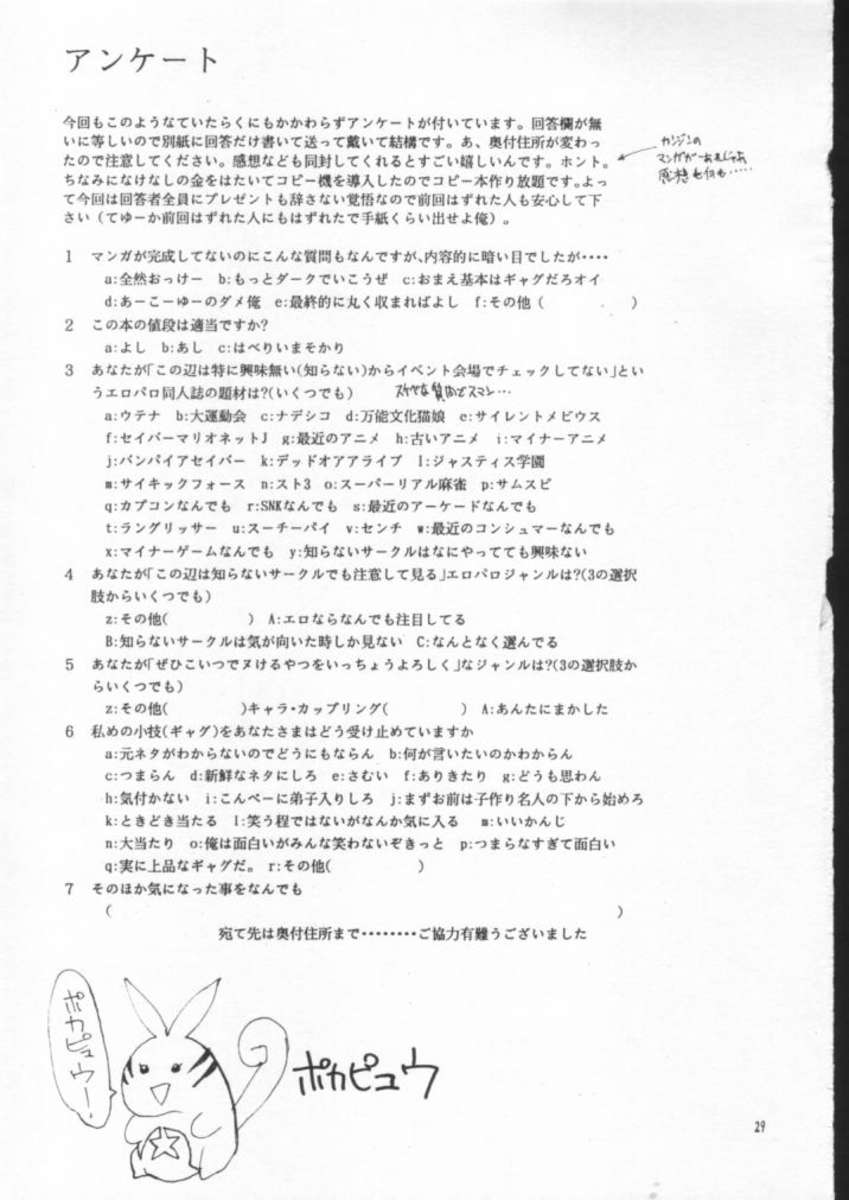 アンケート
今回もこのようなていたらくにもかかわらずアンケートが付いています。回答欄が無
いに等しいので別紙に回答だけ書いて送って戴いて結構です。あ、奥付住所が変わっ
たので注意してください。感想なども同封してくれるとすごい嬉しいんです。ホント。
ちなみになけなしの金をはたいてコピー機を導入したのでコピー本作り放題です。よっ
て今回は回答者全員にプレゼントも辞さない覚悟なので前回はずれた人も安心して下
さい（てゆーか前回はずれた人にもはずれたで手紙くらい出せよ俺）。
カンジンの
マンガがあれじゃあ
感想も何も・・・・・
1 マンガが完成してないのにこんな質問もなんですが、内容的に暗い目でしたが・・・・
a:全然おっけー b:もっとダークでいこうぜ c:おまえ基本はギャグだろオイ
d:あーこーゆーのダメ俺 e:最終的に丸く収まればよし f:その他（ ）
2 この本の値段は適当ですか?
a:よし b:あし c:はべりいまそかり
3 あなたが「この辺は特に興味無い(知らない)からイベント会場でチェックしてない」とい
うエロパロ同人誌の題材は?(いくつでも) スケベな質問でスマン・・・
a:ウテナ b:大運動会 c:ナデシコ d:万能文化猫娘 e:サイレントメビウス
f:セイバーマリオネットJ g:最近のアニメ h:古いアニメ i:マイナーアニメ
j:バンパイアセイバー k:デッドオアアライブ l:ジャスティス学園
m:サイキックフォース n:スト3 o:スーパーリアル麻雀 p:サムスピ
q:カプコンなんでも r:SNKなんでも s:最近のアーケードなんでも
t:ラングリッサー u:スーチーパイ v:センチ w:最近のコンシュマーなんでも
x:マイナーゲームなんでも y:知らないサークルはなにやってても興味ない
4 あなたが「この辺は知らないサークルでも注意して見る」エロパロジャンルは?(3の選択
肢からいくつでも)
z:その他( ) A:エロならなんでも注目してる
B:知らないサークルは気が向いた時しか見ない C:なんとなく選んでる
5 あなたが「ぜひこいつでヌけるやつをいっちょうよろしく」なジャンルは?(3の選択肢か
らいくつでも)
z:その他( )キャラ・カップリング( ) A:あんたにまかした
6 私めの小技(ギャグ)をあなたさまはどう受け止めていますか
a:元ネタがわからないのでどうにもならん b:何が言いたいのかわからん
c:つまらん d:新鮮なネタにしろ e:さむい f:ありきたり g:どうも思わん
h:気付かない i:こんぺーに弟子入りしろ j:まずお前は子作り名人の下から始めろ
k:ときどき当たる l:笑う程ではないがなんか気に入る m:いいかんじ
n:大当たり o:俺は面白いがみんな笑わないぞきっと p:つまらなすぎて面白い
q:実に上品なギャグだ。 r:その他( )
7 そのほか気になった事をなんでも
( )
宛て先は奥付住所まで・・・・・・・・ご協力有難うございました
ポカピュウー!
ポカピュウ
29